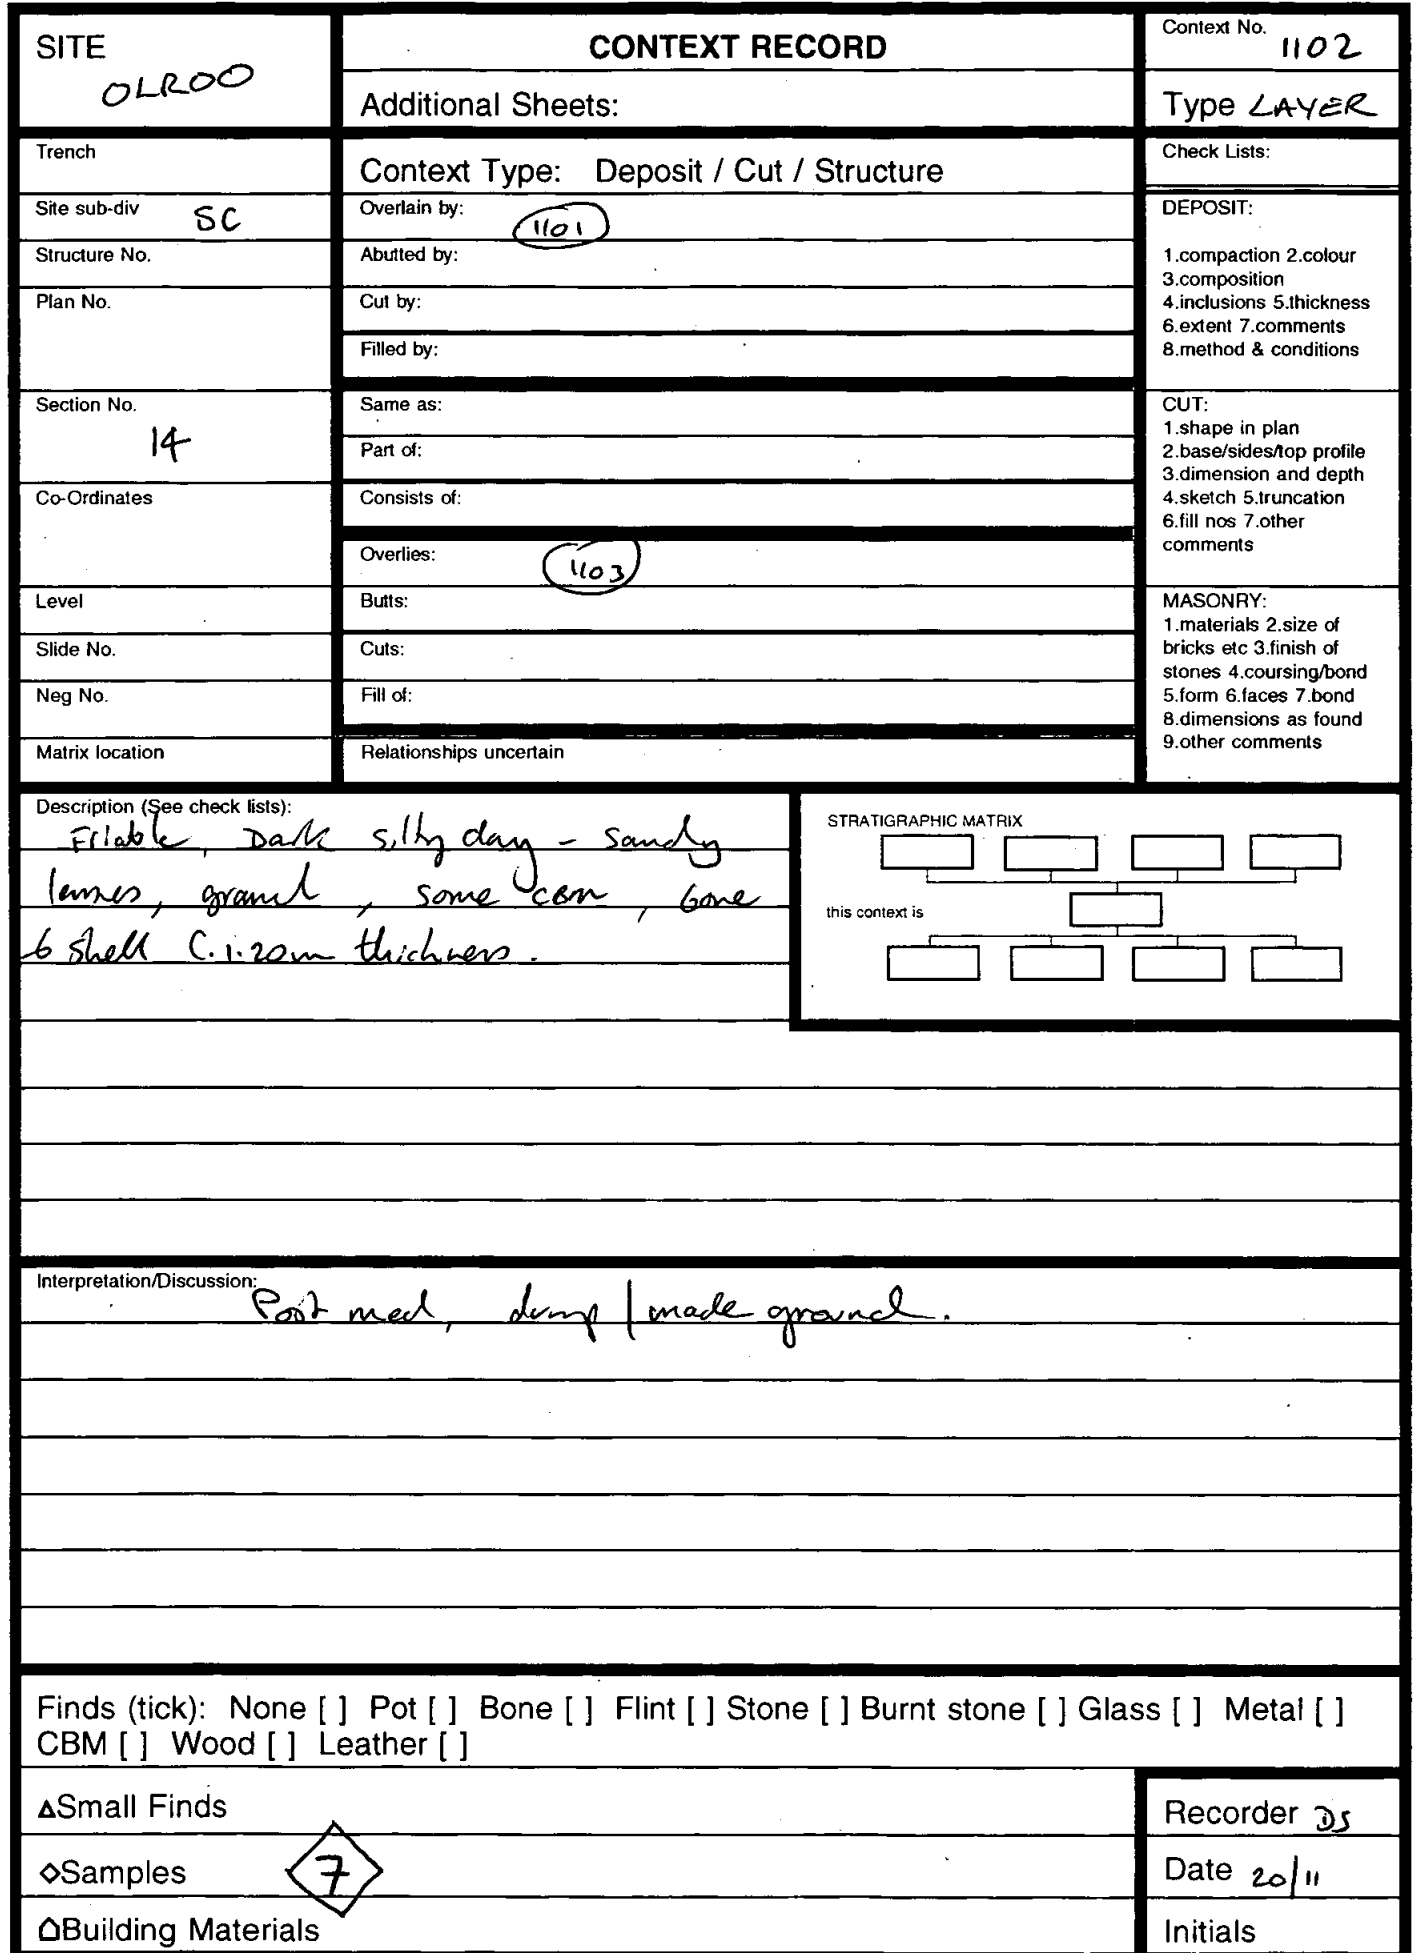 SITE
OLR00
CONTEXT RECORD
Additional Sheets:
Context No. 1102
Type LAYER
Trench
Site sub-div SC
Structure No.
Plan No.
Section No.
14
Co-Ordinates
Level
Slide No.
Neg No.
Matrix location
Context Type: Deposit / Cut / Structure
Overlain by: 1101
Abutted by:
Cut by:
Filled by:
Same as:
Part of:
Consists of:
Overlies: 1103
Butts:
Cuts:
Fill of:
Relationships uncertain
Check Lists:
DEPOSIT:
1.compaction 2.colour
3.composition
4.inclusions 5.thickness
6.extent 7.comments
8.method & conditions
CUT:
1.shape in plan
2.base/sides/top profile
3.dimension and depth
4.sketch 5.truncation
6.fill nos 7.other
comments
MASONRY:
1.materials 2.size of
bricks etc 3.finish of
stones 4.coursing/bond
5.form 6.faces 7.bond
8.dimensions as found
9.other comments
Description (See check lists):
Friable, Dark silty clay - sandy
lenses, gravel, some cbm, bone
& shell C.1.20m thickness.
STRATIGRAPHIC MATRIX
this context is
Interpretation/Discussion:
Post med, dump / made ground.
Finds (tick): None [ ] Pot [ ] Bone [ ] Flint [ ] Stone [ ] Burnt stone [ ] Glass [ ] Metal [ ]
CBM [ ] Wood [ ] Leather [ ]
Small Finds
Samples 7
Building Materials
Recorder DS
Date 20/11
Initials